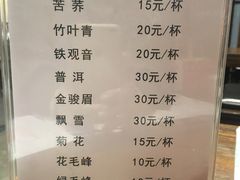 苦荞 15元/杯
竹叶青 20元/杯
铁观音 20元/杯
普洱 30元/杯
金骏眉 30元/杯
飘雪 30元/杯
菊花 15元/杯
花毛峰 10元/杯
绿毛峰 10元/杯